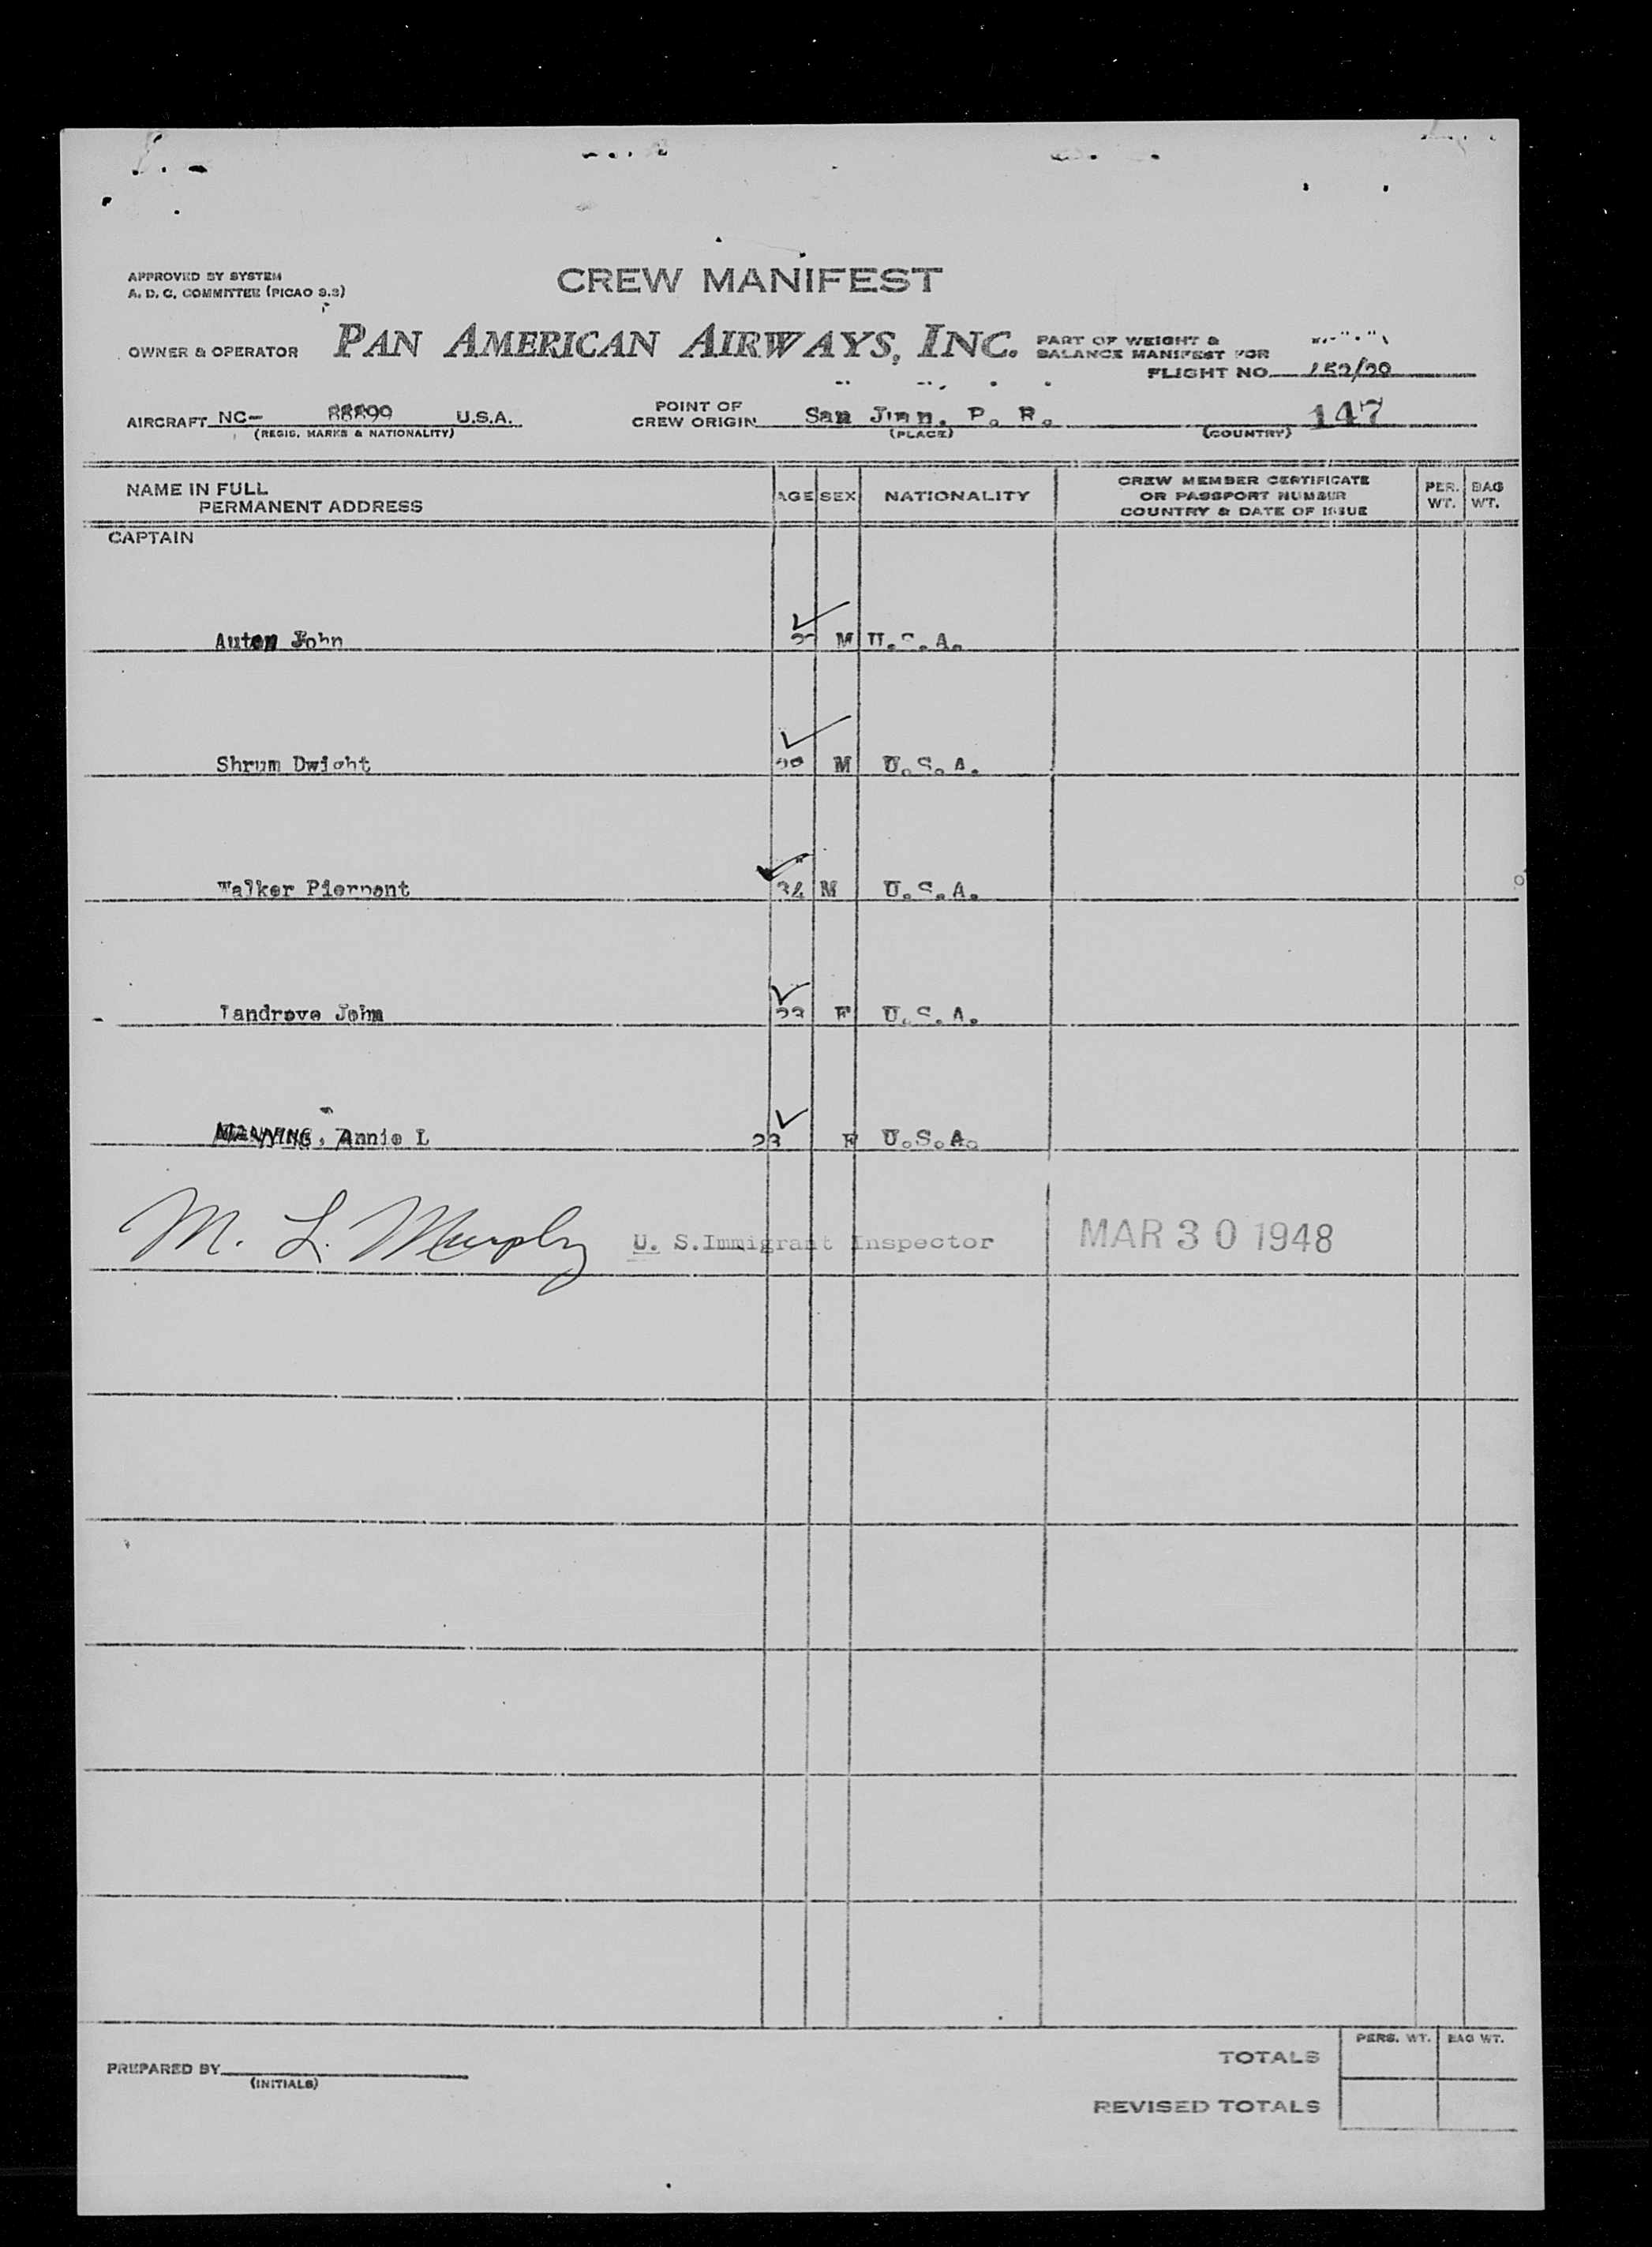 CREW MANIFEST
APPROVED BY SYSTEM
A. D. C. COMMITTEE (PICAO 9.3)
OWNER & OPERATOR PAN AMERICAN AIRWAYS, INC. PART OF WEIGHT &
BALANCE MANIFEST FOR
FLIGHT NO.
AIRCRAFT NC- 88899 U.S.A. POINT OF CREW ORIGIN San Juan, P. R. 147
(REGIS. MARKS & NATIONALITY) (PLACE) (COUNTRY)
NAME IN FULL
PERMANENT ADDRESS
AGE SEX NATIONALITY
CREW MEMBER CERTIFICATE
OR PASSPORT NUMBER
COUNTRY & DATE OF ISSUE
PER. WT.
BAG WT.
CAPTAIN
Auten John M U.S.A.
Shrum Dwight M U.S.A.
Walker Pierpont 34 M U.S.A.
Landrove John 23 F U.S.A.
MANNING, Annie L 23 F U.S.A.
M. L. Murphy U. S. Immigrant Inspector MAR 30 1948
PERS. WT. BAG WT.
TOTALS
PREPARED BY
(INITIALS)
REVISED TOTALS